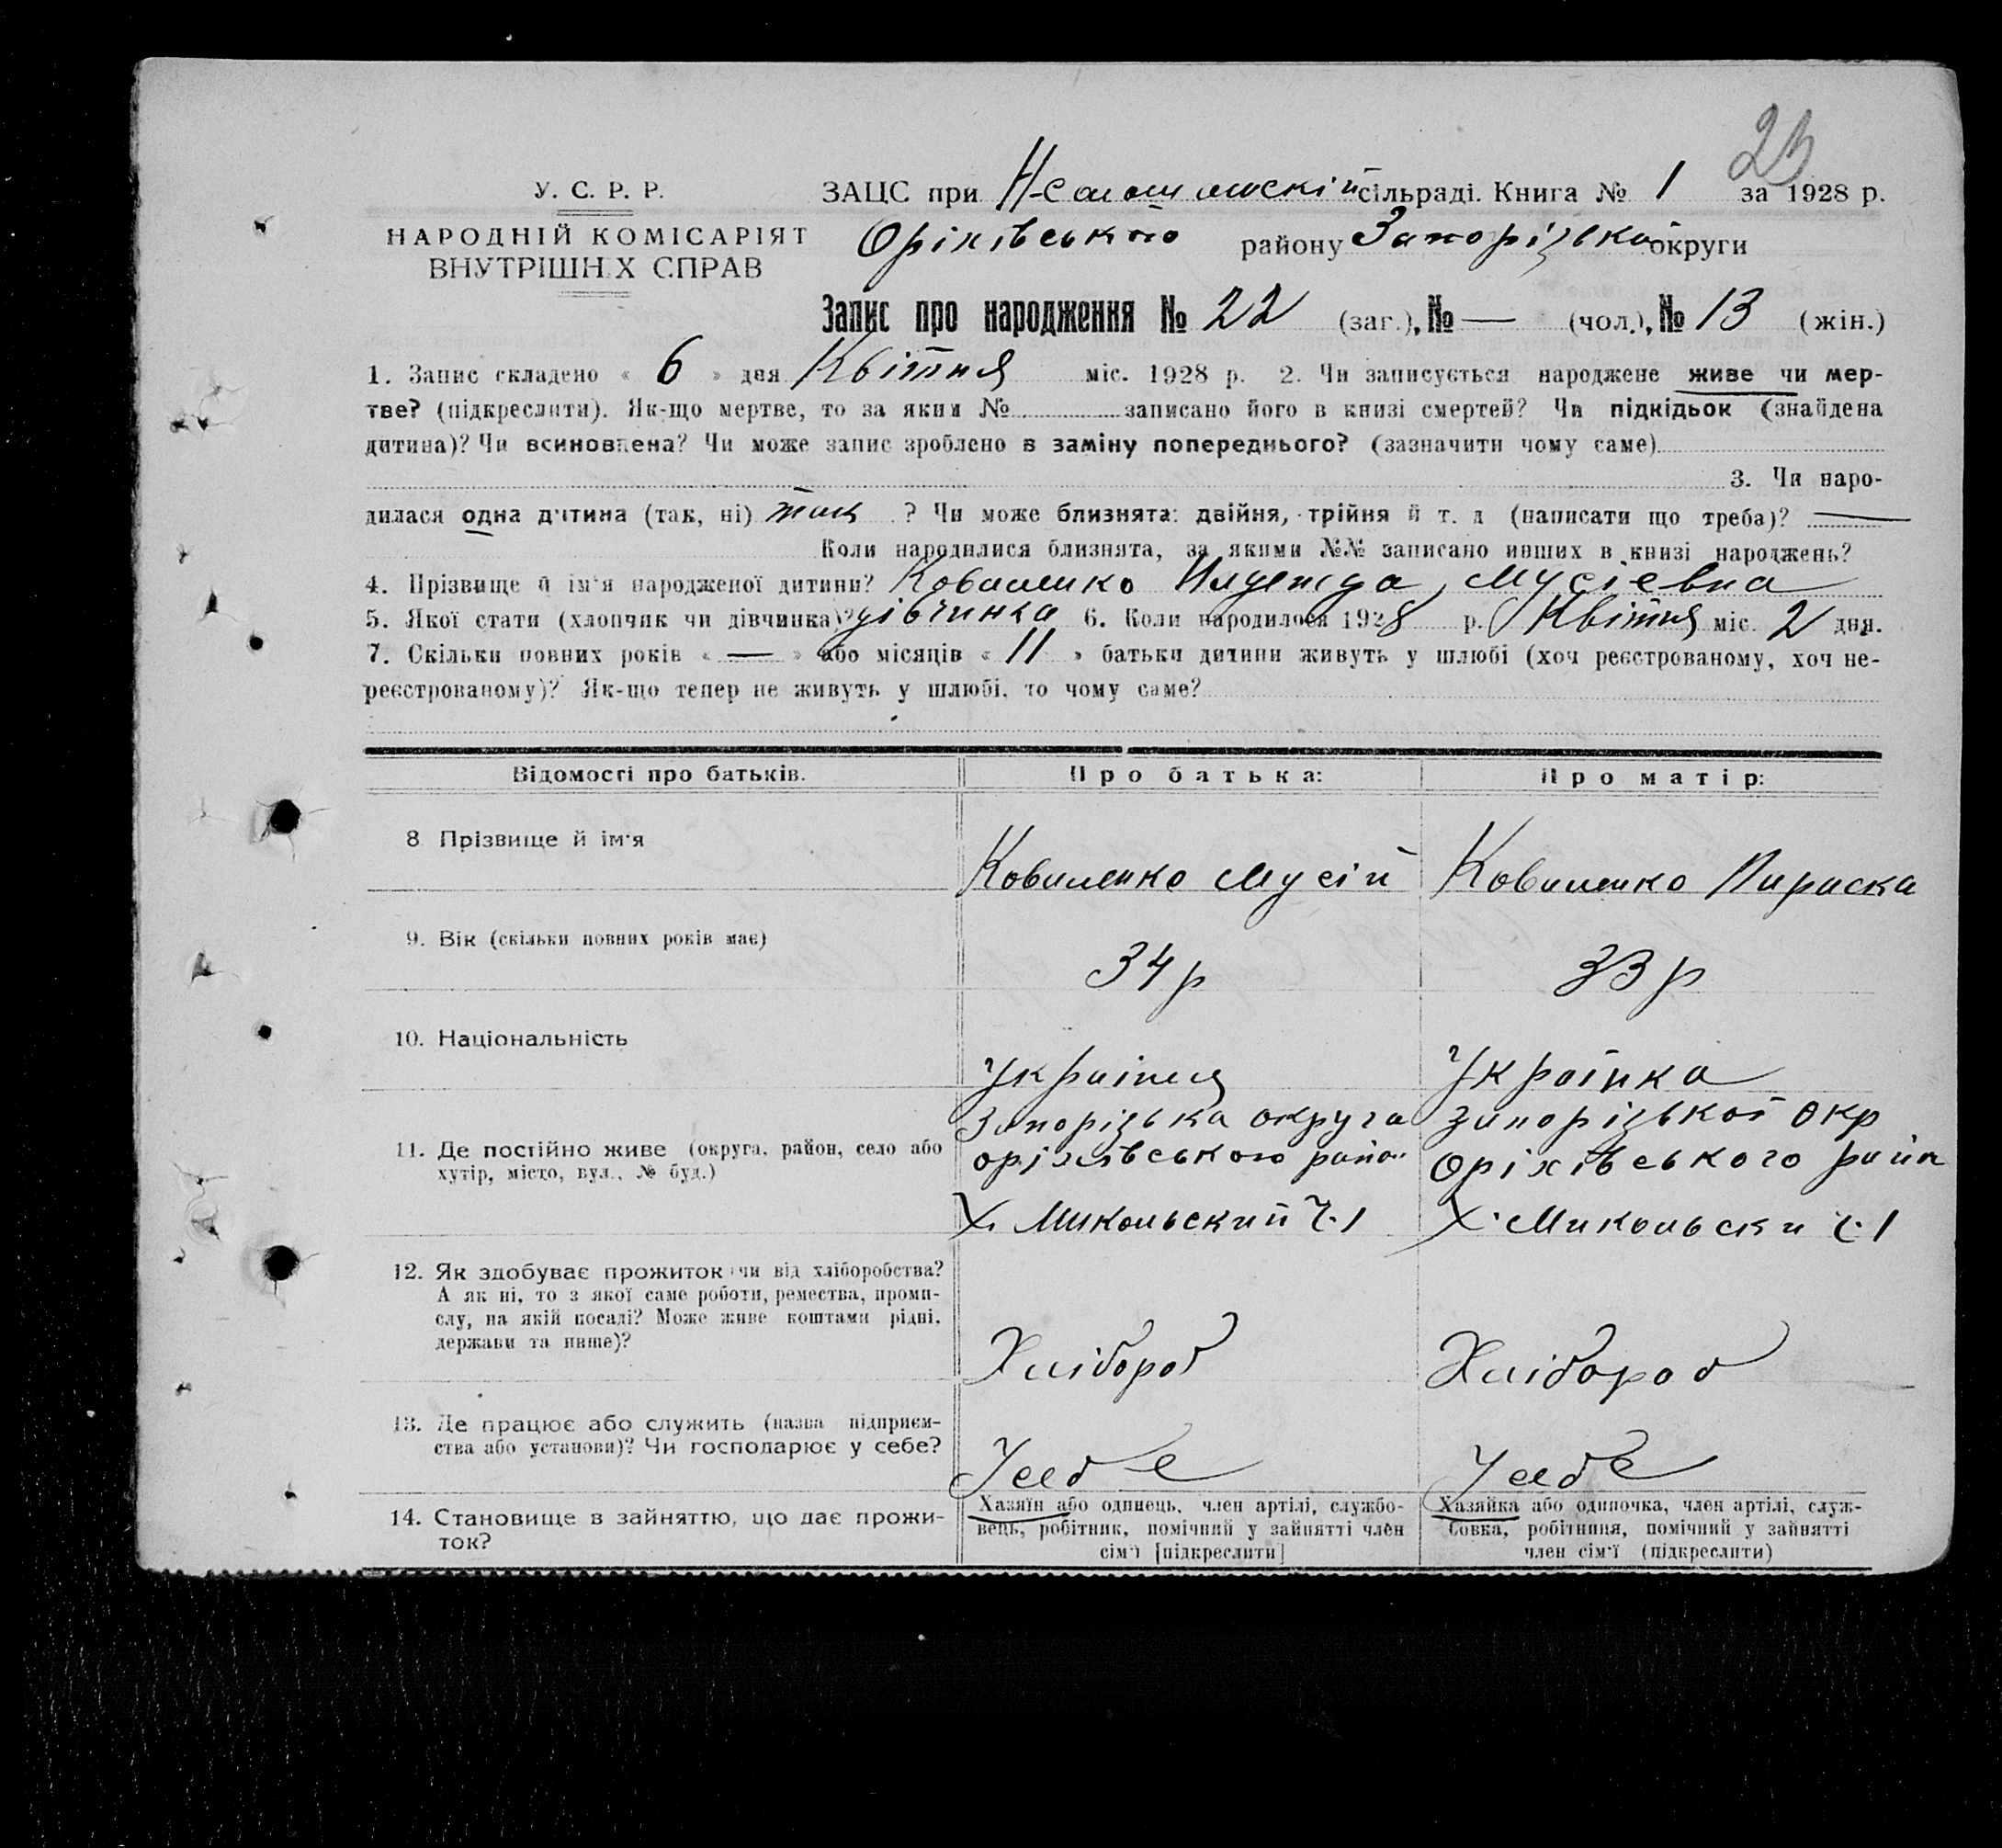 23
У. С. Р. Р.
НАРОДНІЙ КОМІСАРІЯТ
ВНУТРІШН Х СПРАВ
ЗАЦС при сільраді. Книга № 1 за 1928 р.
Оріхівського району Запорізької округи
Запис про народження № 22 (заг.), № — (чол.), № 13 (жін.)
1. Запис складено « 6 » дня Квітня міс. 1928 р. 2. Чи записується народжене живе чи мер-
тве? (підкреслити). Як-що мертве, то за яким № записано його в книзі смертей? Чи підкідьок (знайдена
дитина)? Чи всиновлена? Чи може запис зроблено в заміну попереднього? (зазначити чому саме)
3. Чи наро-
дилася одна дитина (так, ні) так ? Чи може близнята: двійня, трійня й т. д (написати що треба)? —
Коли народилися близнята, за якими №№ записано инших в книзі народжень?
4. Прізвище й ім'я народженої дитини? Коваленко Надежда, Мусіевна
5. Якої стати (хлопчик чи дівчинка)? дівчинка 6. Коли народилося 1928 р. Квітня міс. 2 дня.
7. Скільки повних років « — » або місяців « 11 » батьки дитини живуть у шлюбі (хоч реєстрованому, хоч не-
реєстрованому)? Як-що тепер не живуть у шлюбі, то чому саме?
Відомості про батьків. Про батька: Про матір:
8 Прізвище й ім'я Коваленко Мусій Коваленко Параска
9. Вік (скільки повних років має) 34 р 33 р
10. Національність Украінця Українка
11. Де постійно живе (округа, район, село або
хутір, місто, вул., № буд.)
Запорізька округа Запорізької окр
оріхівського район Оріхівського райн
Х. Микольский Ч.1 Х. Микольски ч.1
12. Як здобуває прожиток (чи від хліборобства?
А як ні, то з якої саме роботи, ремества, проми-
слу, на якій посаді? Може живе коштами рідні,
держави та инше)?
Хлібороб Хлібороб
13. Де працює або служить (назва підприєм-
ства або установи)? Чи господарює у себе?
У себе У себе
14. Становище в зайняттю, що дає прожи-
ток?
Хазяїн або одинець, член артілі, службо-
вець, робітник, помічний у зайнятті член
сім'ї [підкреслити]
Хазяйка або одиночка, член артілі, служ-
бовка, робітниця, помічний у зайнятті
член сім'ї (підкреслити)